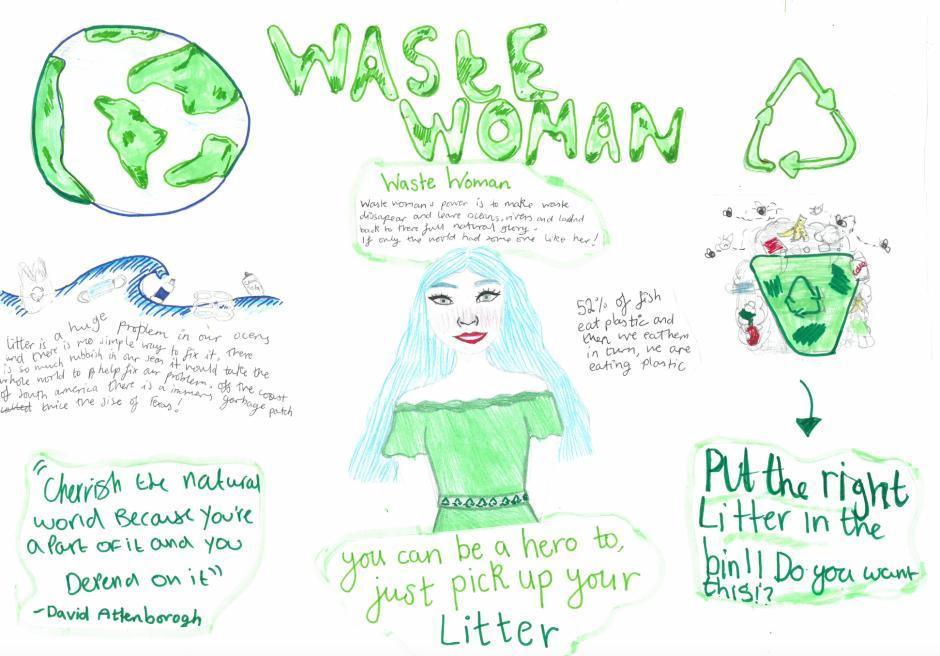 WASTE
WOMAN
Waste Woman
Waste woman's power is to make waste
dissapear and leave oceans, rivers and
back to there full natural glory.
If only the world had some one like her!
a huge problem in our ocens
Litter is a is no simple way to fix it, there
and there rubbish in our seas it would take the
is so much
whole world to help fix our problem. Off the coast
of south america there is a immens garbage patch
twice the size of Texas!
52% of fish
eat plastic and
then we eat them
in turn, we are
eating plastic
"Cherrish the natural
world Because you're
a part of it and you
Depend on it"
-David Attenborogh
you can be a hero to,
just pick up your
Litter
Put the right
Litter in the
bin!! Do you want
this!?